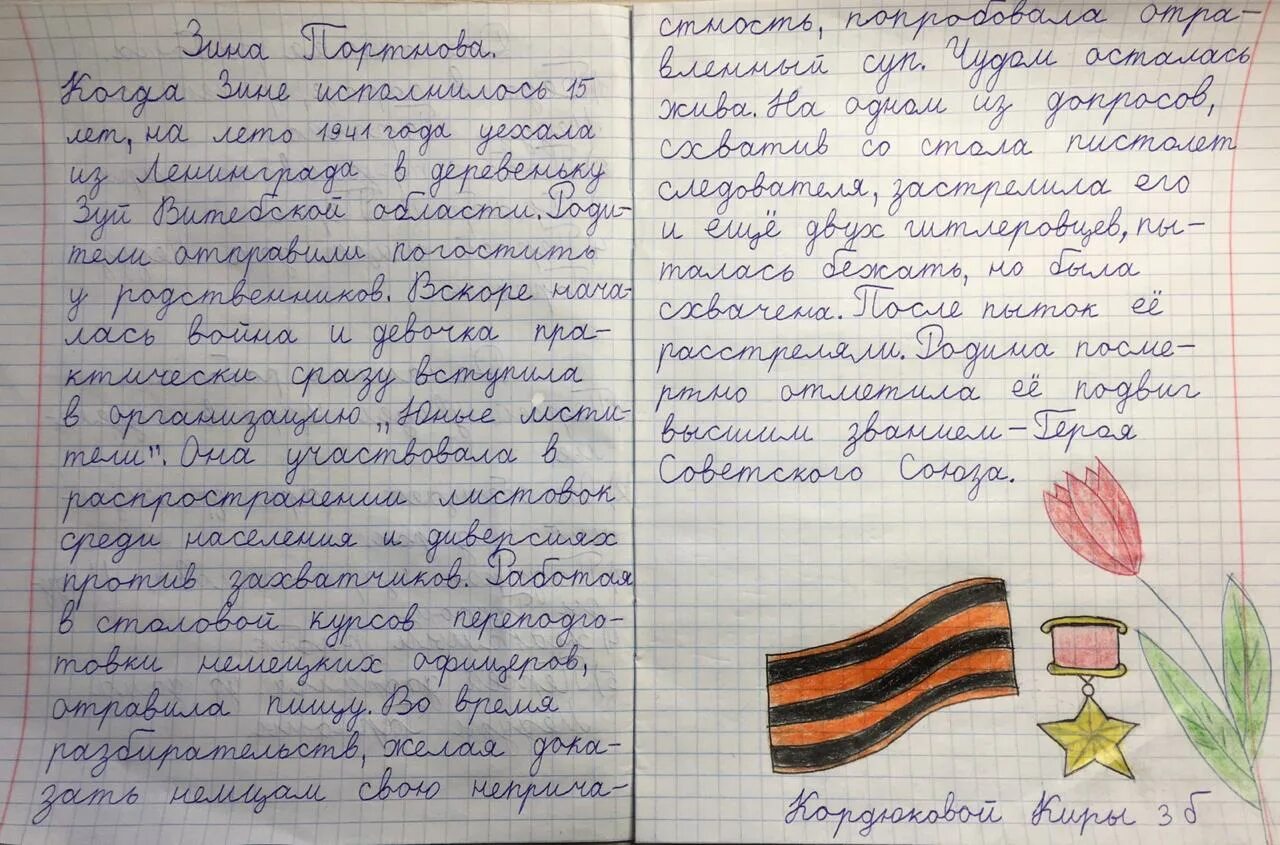 Зина Портнова.
Когда Зине исполнилось 15
лет, на лето 1941 года уехала
из Ленинграда в деревеньку
Зуй Витебской области. Роди-
тели отправили погостить
у родственников. Вскоре нача-
лась война и девочка пра-
ктически сразу вступила
в организацию „Юные мсти-
тели". Она участвовала в
распространении листовок
среди населения и диверсиях
против захватчиков. Работая
в столовой курсов переподго-
товки немецких офицеров,
отравила пищу. Во время
разбирательств, желая дока-
зать немцам свою неприча-
стность, попробовала отра-
вленный суп. Чудом осталась
жива. На одном из допросов,
схватив со стола пистолет
следователя, застрелила его
и ещё двух гитлеровцев, пы-
талась бежать, но была
схвачена. После пыток её
расстреляли. Родина посме-
ртно отметила её подвиг
высшим званием – Героя
Советского Союза.
Кордюковой Киры 3 б